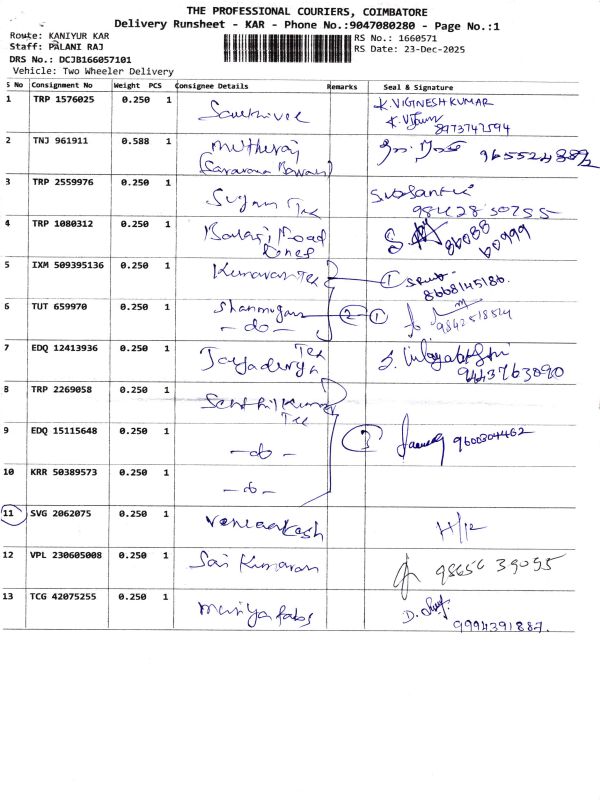 THE PROFESSIONAL COURIERS, COIMBATORE
Delivery Runsheet - KAR - Phone No.:9047080280 - Page No.:1
Route: KANIYUR KAR
Staff: PALANI RAJ
DRS No.: DCJB166057101
Vehicle: Two Wheeler Delivery
RS No.: 1660571
RS Date: 23-Dec-2025
S No Consignment No Weight PCS Consignee Details Remarks Seal & Signature
1 TRP 1576025 0.250 1 Sakthivel K.VIGNESH KUMAR
8973742594
2 TNJ 961911 0.588 1 Muthuraj
3 TRP 2559976 0.250 1
98428 50755
4 TRP 1080312 0.250 1 Balaji Food
86088
60999
5 IXM 509395136 0.250 1 Kumaran Tex 1
8668145186.
6 TUT 659970 0.250 1 Shanmugam 2 1
- do - 9842518524
7 EDQ 12413936 0.250 1 Jayadurga Tex
9443763090
8 TRP 2269058 0.250 1 Senthil Kumar
Tex
9 EDQ 15115648 0.250 1 - do - 3 9600304462
10 KRR 50389573 0.250 1 - do -
11 SVG 2062075 0.250 1 Venkaakash H/12
12 VPL 230605008 0.250 1 Sai Kumaran 98656 39055
13 TCG 42075255 0.250 1 Muriya fabs D.
9994391887.